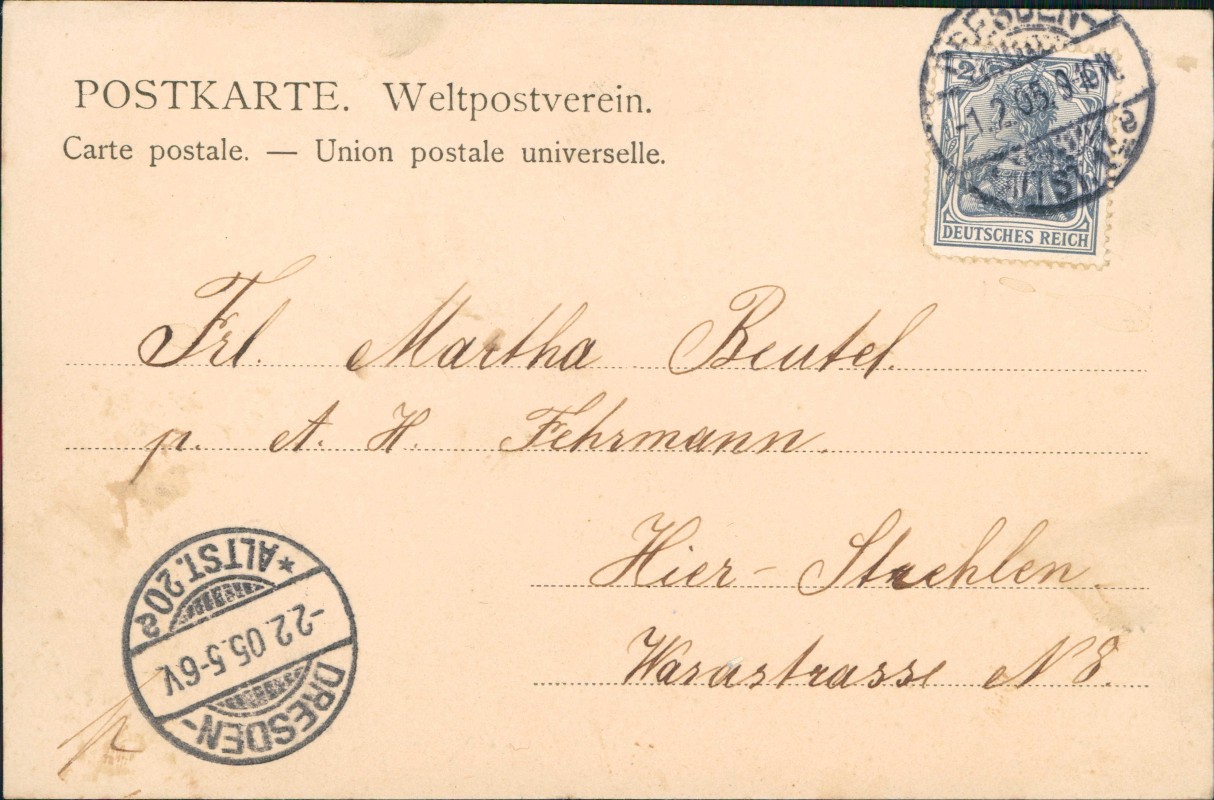 POSTKARTE. Weltpostverein.
Carte postale. — Union postale universelle.
DRESDEN-
2
-1.2.05.9-10N.
ALTST.
DEUTSCHES REICH
Frl. Martha Beutel.
p. A. H. Fehrmann.
Hier - Strehlen.
Wasastrasse N 8.
*ALTST.20e
-2.2.05.5-6V.
DRESDEN-